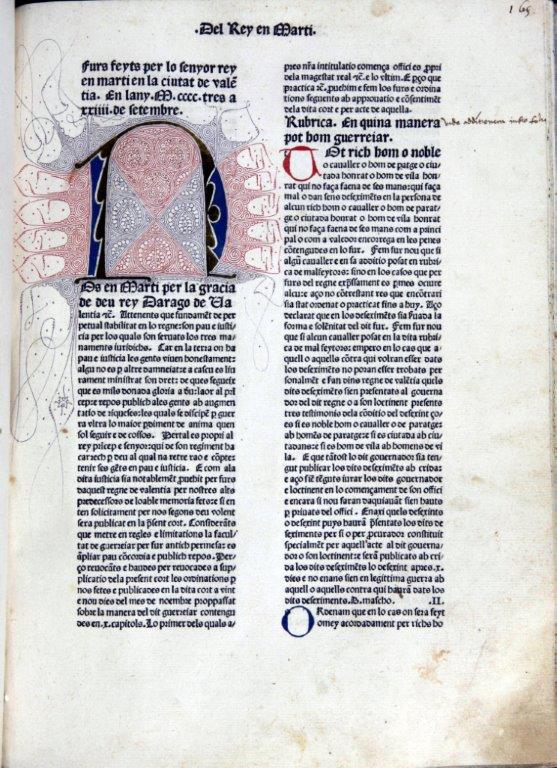 165
.Del Rey en Marti.
Furs feyts per lo senyor rey
en marti en la ciutat de valē
tia. En lany .M. cccc. tres a
xxiiii. de setembre.
NOs en Marti per la gracia
de deu rey Darago de Va
lentia ⁊ć. Attenents que fundamēt de per
petual stabilitat en lo regne: son pau e iusti
cia per los quals son seruats los tres ma
naments iuridichs. Car en la terra on ha
pau e iusticia les gents viuen honestament:
algu no es p altre damneiat: e a cascu es liu
rament ministrat son dret: de ques segueix
sol seguir e de cossos. Pertal es propri al
rey prīcep e senyor: qui de son regiment ha
dita iusticia sia notablemēt ꝓuehit per furs
daquest regne de valentia per nostres alts
predecessors de loable memoria fets: e si en
ten solicitament per nos segons deu volent
sera publicat en la p̄sent cort. Considerāts
que metre en regles e limitations la facul
tat de guerreiar per fur antich permesa: es
āpliar pau cōcordia e publich repos. Per
ço reuocāts e haudes per reuocades a sup
plicatio dela present cort les ordinations p
nos fetes e publicades en la dita cort a vint
e nou dies del mes de noembre proppassat
sobre la manera del dit guerreiar contengu
des en .x. capitols. Lo primer dels quals a/
pres nr̄a intitulatio comença offici es ꝓpri
dela magestat real ⁊ć. e lo vltim. E pço que
practica ⁊ć. ꝓuehim e fem los furs e ordina
tions seguents ab approuatio e cōsentimēt
dela dita cort e per acte de aquella.
Rubrica. En quina manera
pot hom guerreiar.
TOt rich hom o noble
o caualler o hom de paratge o ciu
tada honrat o hom de vila hon
rat qui no faça faena de ses mans: qui faça
mal o dan sens deseximēts en la persona de
alcun rich hom o caualler o hom de parat
ge o ciutada honrat o hom de vila honrat
qui no faça faena de ses mans com a princi
pal o com a valedor encorrega en les penes
cōtengudes en lo fur. Fem fur nou que si
algū caualler e en sa additio posat en rubri
ca de malfeytors: sino en los casos que per
furs del regne exp̄ssament es p̄mes ociure
sia stat ordenat o practicat fins a huy. Aço
declarat que en los deseximēts sia guardada la
forma e solēnitat del dit fur. Fem fur nou
que si alcun caualler posat en la dita rubri
ca de malfeytors: empero en lo cas que a
quell o aquells cōtra qui volran esser dats
los deseximēts no poran esser trobats per
sonalmēt e san dins regne de valētia quels
dits deseximēts sien presentats al gouerna
dor del dit regne o a son loctinent presents
tres testimonis dela cōditio del desexint ço
es si es noble hom o caualler o de paratge:
ab homēs de paratge: si es ciutada ab ciu
tadans: e si es hom de vila ab homens de vi
la. E que tātost lo dit gouernador sia ten
gut publicar los dits deseximēts ab crida:
e loctinent en lo començament de son offici
o desexint puys haurā p̄sentats los dits de
seximents per si o per ꝓcurador constituit
specialmēt per aquell acte al dit gouerna
dor o son loctinent: e serā publicats ab cri
da los dits deseximēts lo desexint apres .x.
dies e no enans sien en legittima guerra ab
aquell o aquells contra qui haurā dats los
dits deseximents. .II.
ORdenam que en lo cas on sera feyt
omey acordadament per richs ho